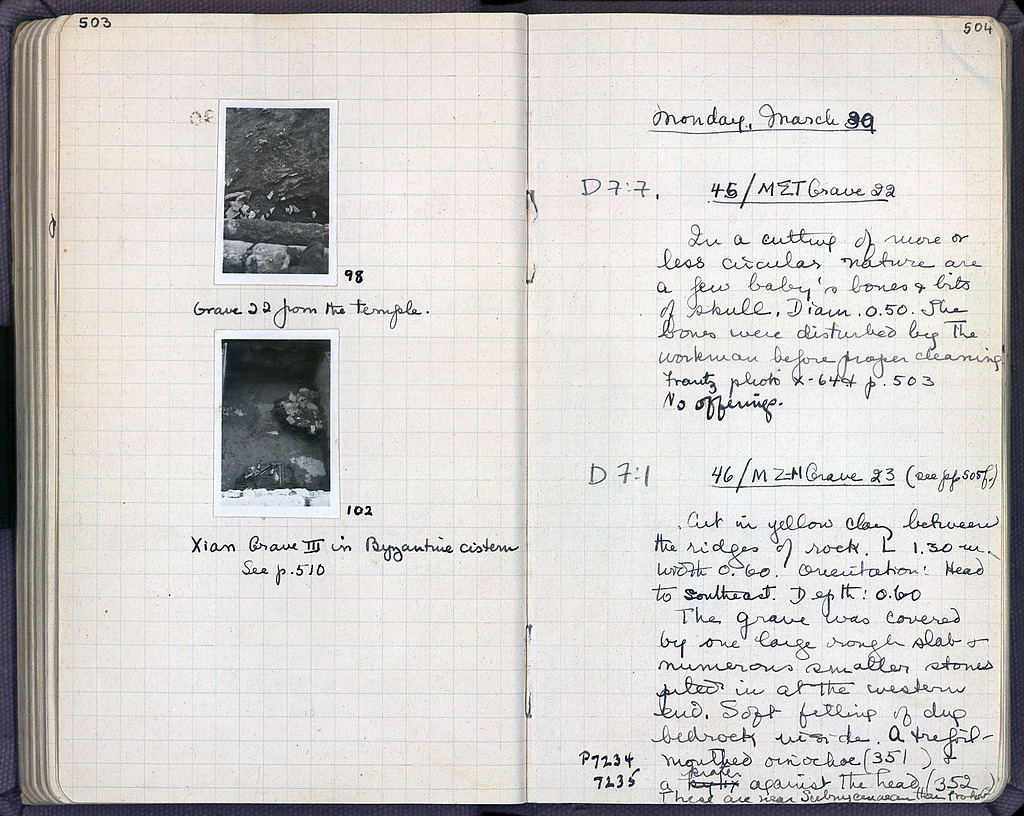 503
98
Grave 22 from the temple.
102
Xian Grave III in Byzantine cistern
See p. 510
504
Monday, March 30
D 7:7. 45/ΜΣΤ Grave 22
In a cutting of more or
less circular nature are
a few baby's bones & bits
of skull. Diam. 0.50. The
bones were disturbed by the
workman before proper cleaning
Frantz photo X-64 & p. 503
No offerings.
D 7:1 46/ΜΖ-Η Grave 23 (see pp 505f.)
Cut in yellow clay between
the ridges of rock. L 1.30 m.
Width 0.60. Orientation: Head
to southeast. Depth: 0.60
The grave was covered
by one large rough slab &
numerous smaller stones
piled in at the western
end. Soft filling of dug
bedrock inside. A trefoil-
P7234 mouthed oinochoe (351) &
7235 a krater against the head (352)
These are near Submycenaean than Protog